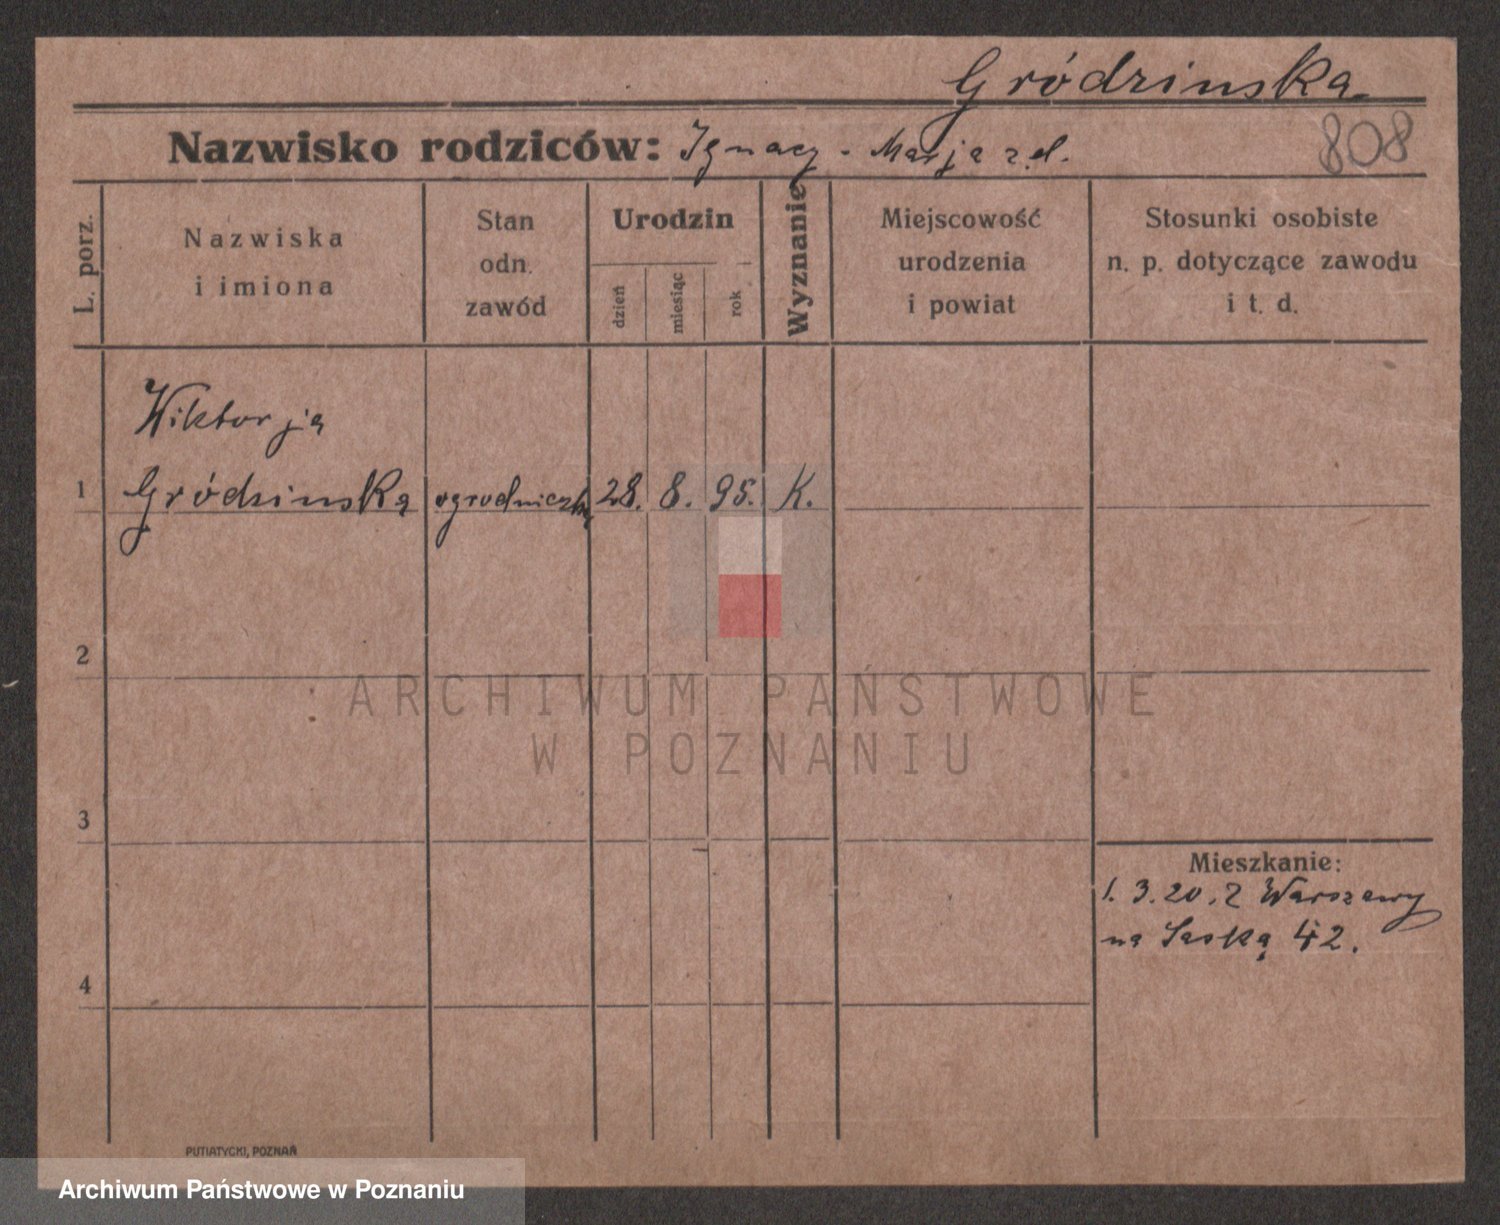 Gródzinska
Nazwisko rodziców: Ignacy - Marja z d.
808
L. porz.
Nazwiska
i imiona
Stan
odn.
zawód
Urodzin
dzień
miesiąc
rok
Wyznanie
Miejscowość
urodzenia
i powiat
Stosunki osobiste
n. p. dotyczące zawodu
i t. d.
Wiktorja
1 Gródzinska ogrodniczka 28. 8. 95. K.
2
ARCHIWUM PAŃSTWOWE
W POZNANIU
3
Mieszkanie:
1. 3. 20. Z Warszawy
na Saską 42.
4
PUTIATYCKI, POZNAŃ
Archiwum Państwowe w Poznaniu